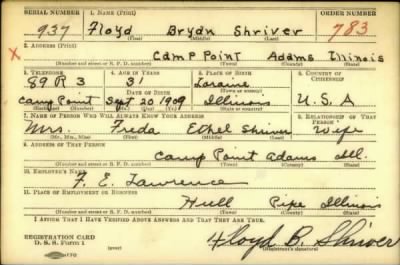 SERIAL NUMBER 1. NAME (Print) ORDER NUMBER
937 Floyd Bryan Shriver 783
(First) (Middle) (Last)
2. ADDRESS (Print)
X Camp Point Adams Illinois
(Number and street or R. F. D. number) (Town) (County) (State)
3. TELEPHONE 4. AGE IN YEARS 5. PLACE OF BIRTH 6. COUNTRY OF CITIZENSHIP
89 R 3 31 Loraine
DATE OF BIRTH
Camp Point Sept 20 1909 Illinois U.S.A
(Exchange) (Number) (Mo.) (Day) (Yr.) (State or country)
7. NAME OF PERSON WHO WILL ALWAYS KNOW YOUR ADDRESS 8. RELATIONSHIP OF THAT PERSON
Mrs. Freda Ethel Shriver Wife
(Mr., Mrs., Miss) (First) (Middle) (Last)
9. ADDRESS OF THAT PERSON
Camp Point Adams Ill.
(Number and street or R. F. D. number) (Town) (County) (State)
10. EMPLOYER'S NAME
F. E. Lawrence
11. PLACE OF EMPLOYMENT OR BUSINESS
Hull Pipe Illinois
(Number and street or R. F. D. number) (Town) (County) (State)
I AFFIRM THAT I HAVE VERIFIED ABOVE ANSWERS AND THAT THEY ARE TRUE.
REGISTRATION CARD
D. S. S. Form 1 Floyd B. Shriver
(Registrant's signature)